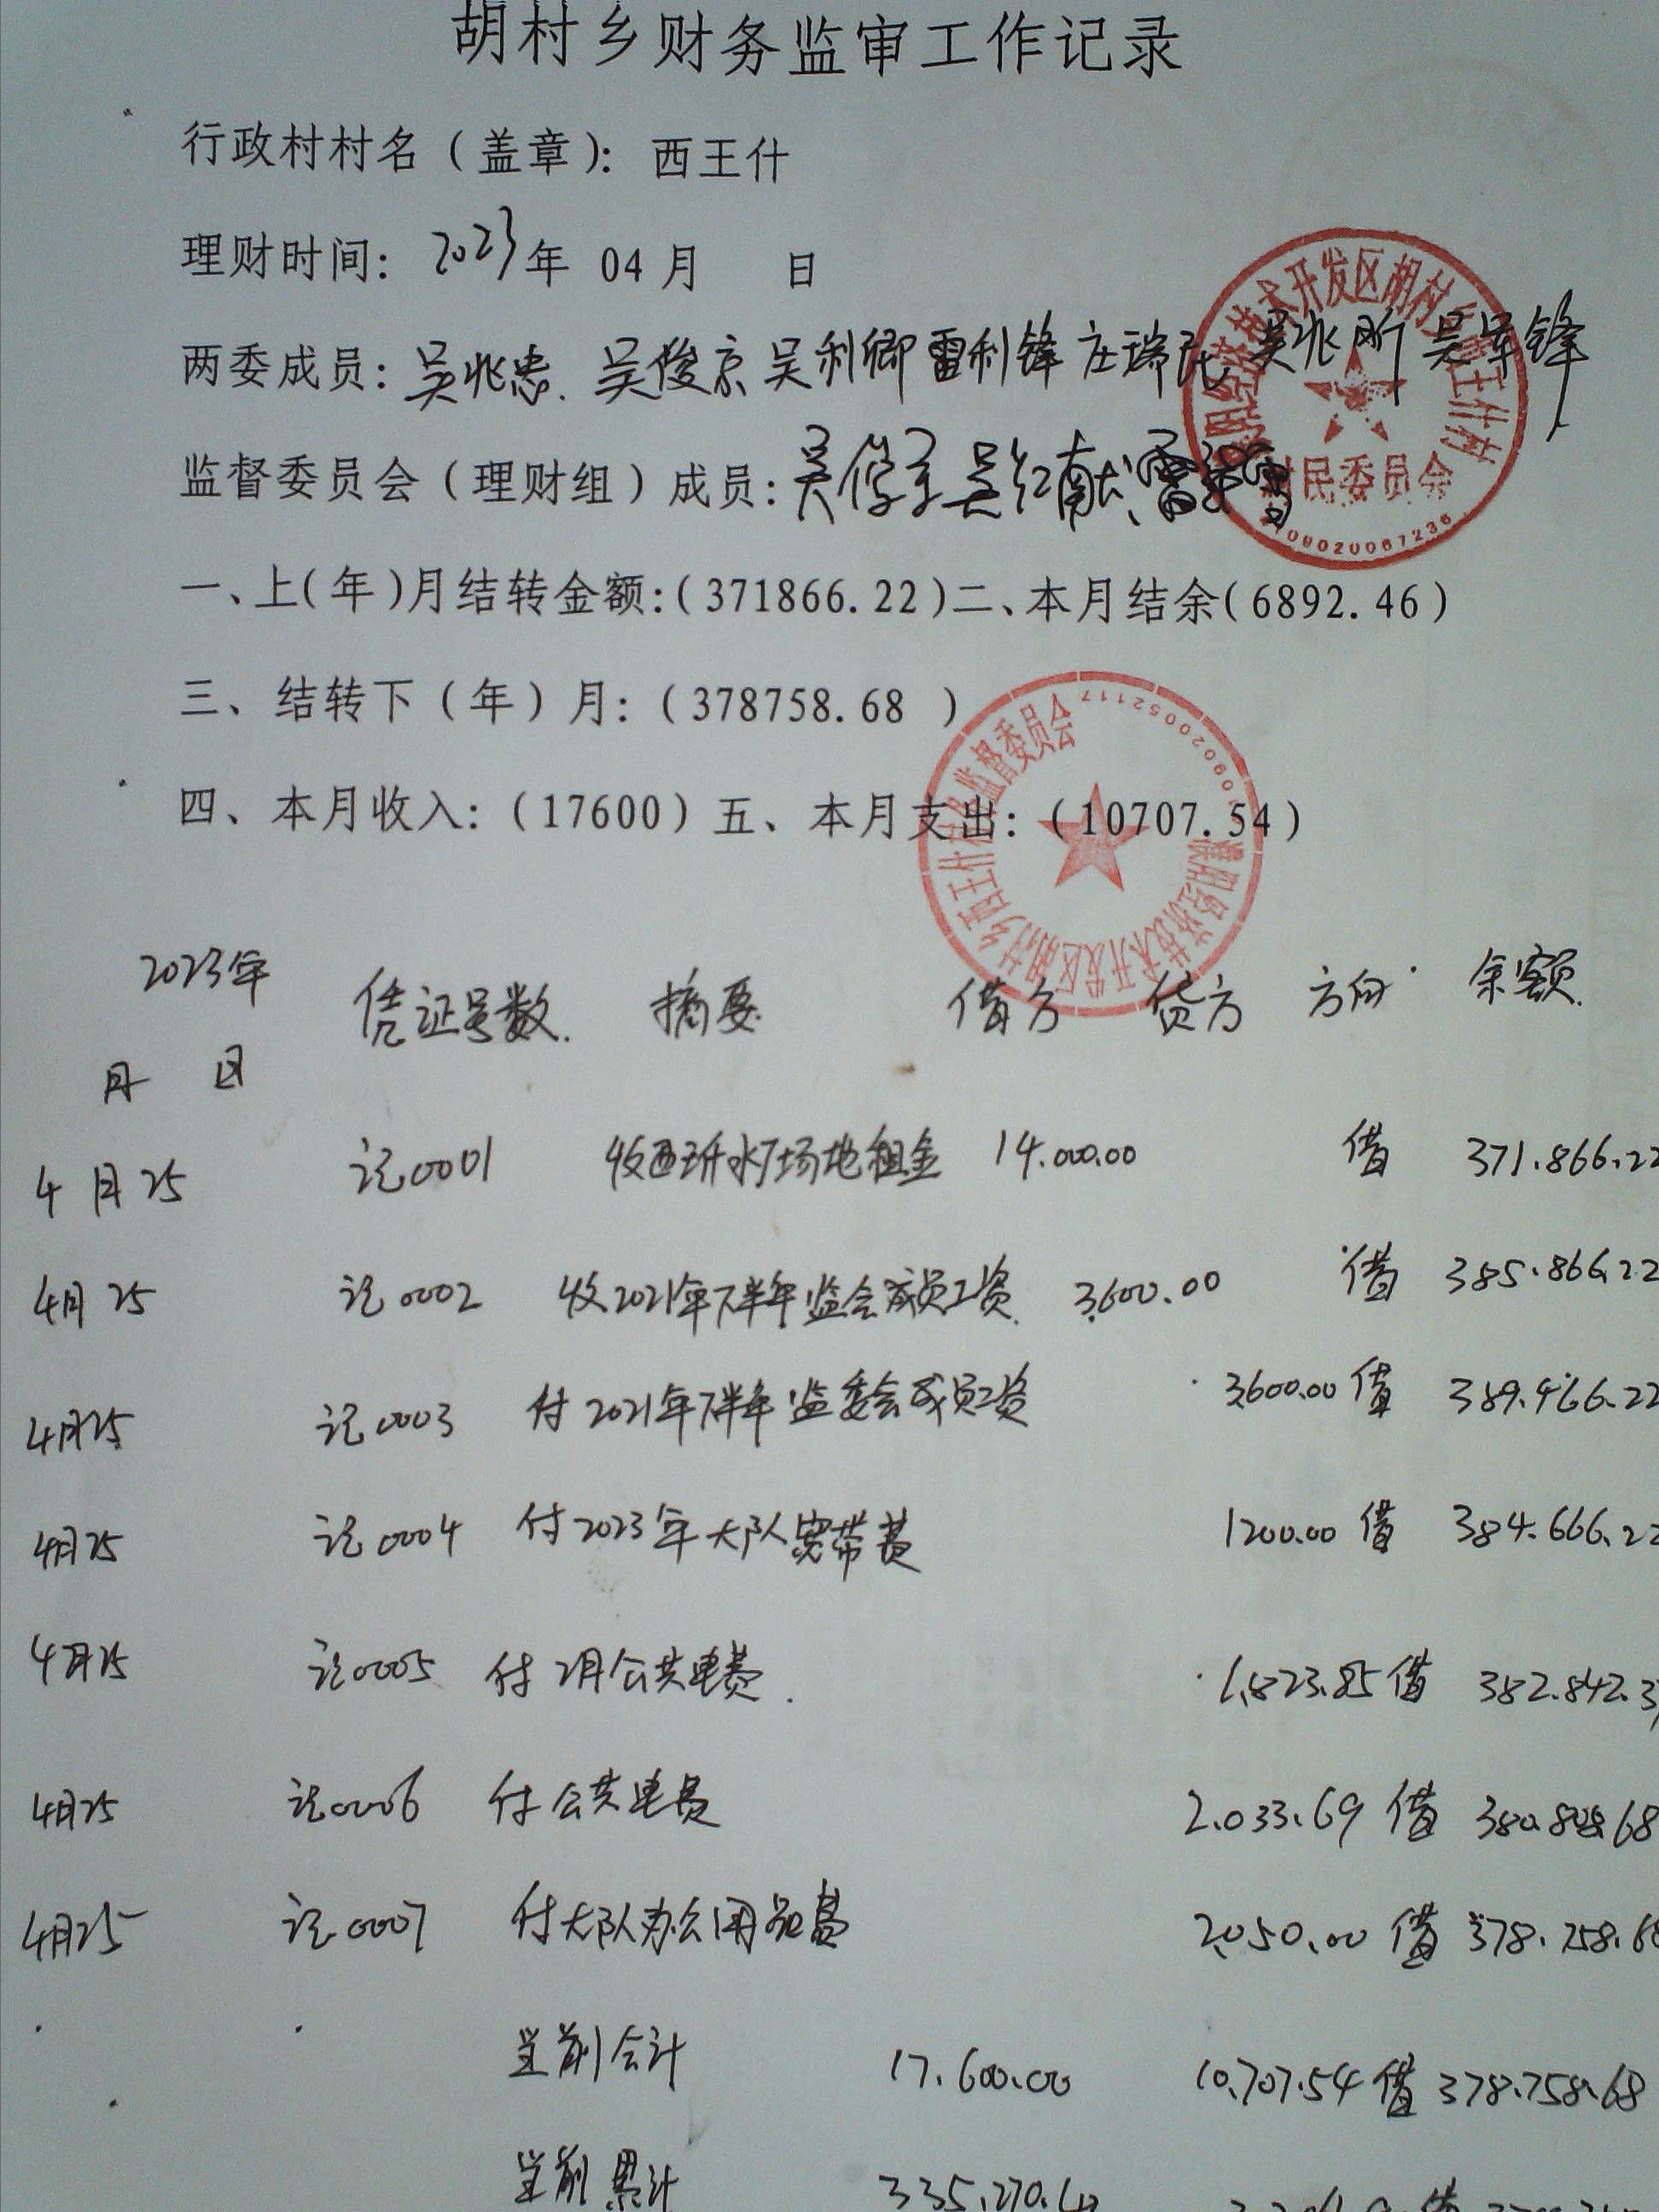 胡村乡财务监审工作记录
行政村村名（盖章）：西王什
理财时间：2023年 04月 日
两委成员：吴兆忠. 吴俊京 吴利卿 雷利锋 庄瑞民 吴兆昕 吴军锋
监督委员会（理财组）成员：吴 吴红献、雷
村民委员会
一、上（年）月结转金额：（371866.22）二、本月结余（6892.46）
三、结转下（年）月：（378758.68 ）
四、本月收入：（17600）五、本月支出：（10707.54）
濮阳经济技术开发区胡村乡西王什村务监督委员会
2023年 凭证号数. 摘要 借方 贷方 方向 余额.
月 日
4月25 记0001 收西班水厂场地租金 14.000.00 借 371.866.22
4月25 记0002 收2021年下半年监会成员工资. 3.600.00 借 385.866.22
4月25 记0003 付2021年下半年监委会成员工资 3600.00 借 389.466.22
4月25 记0004 付2023年大队宽带费 1200.00 借 384.666.22
4月25 记0005 付2月公共电费. 1,823.85 借 382.842.3
4月25 记0006 付公共电费 2.033.69 借 380.808.68
4月25 记0007 付大队办公用品费 2,050.00 借 378.758.68
当前合计 17.600.00 10,707.54 借 378.758.68
当前累计